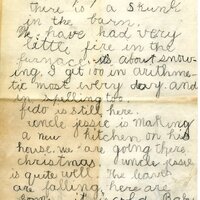 there is a skunk
in the barn.
We have had very
little fire in the
furnace. its about snow-
ing. I get 100 in arithme-
tic most every day and
in spelling too.
fido is still here.
uncle jessie is making
a new kitchen on his
house. we are going there
christmas. uncle jessie
is quite well. The leavs
are falling here are
some. it is cold.